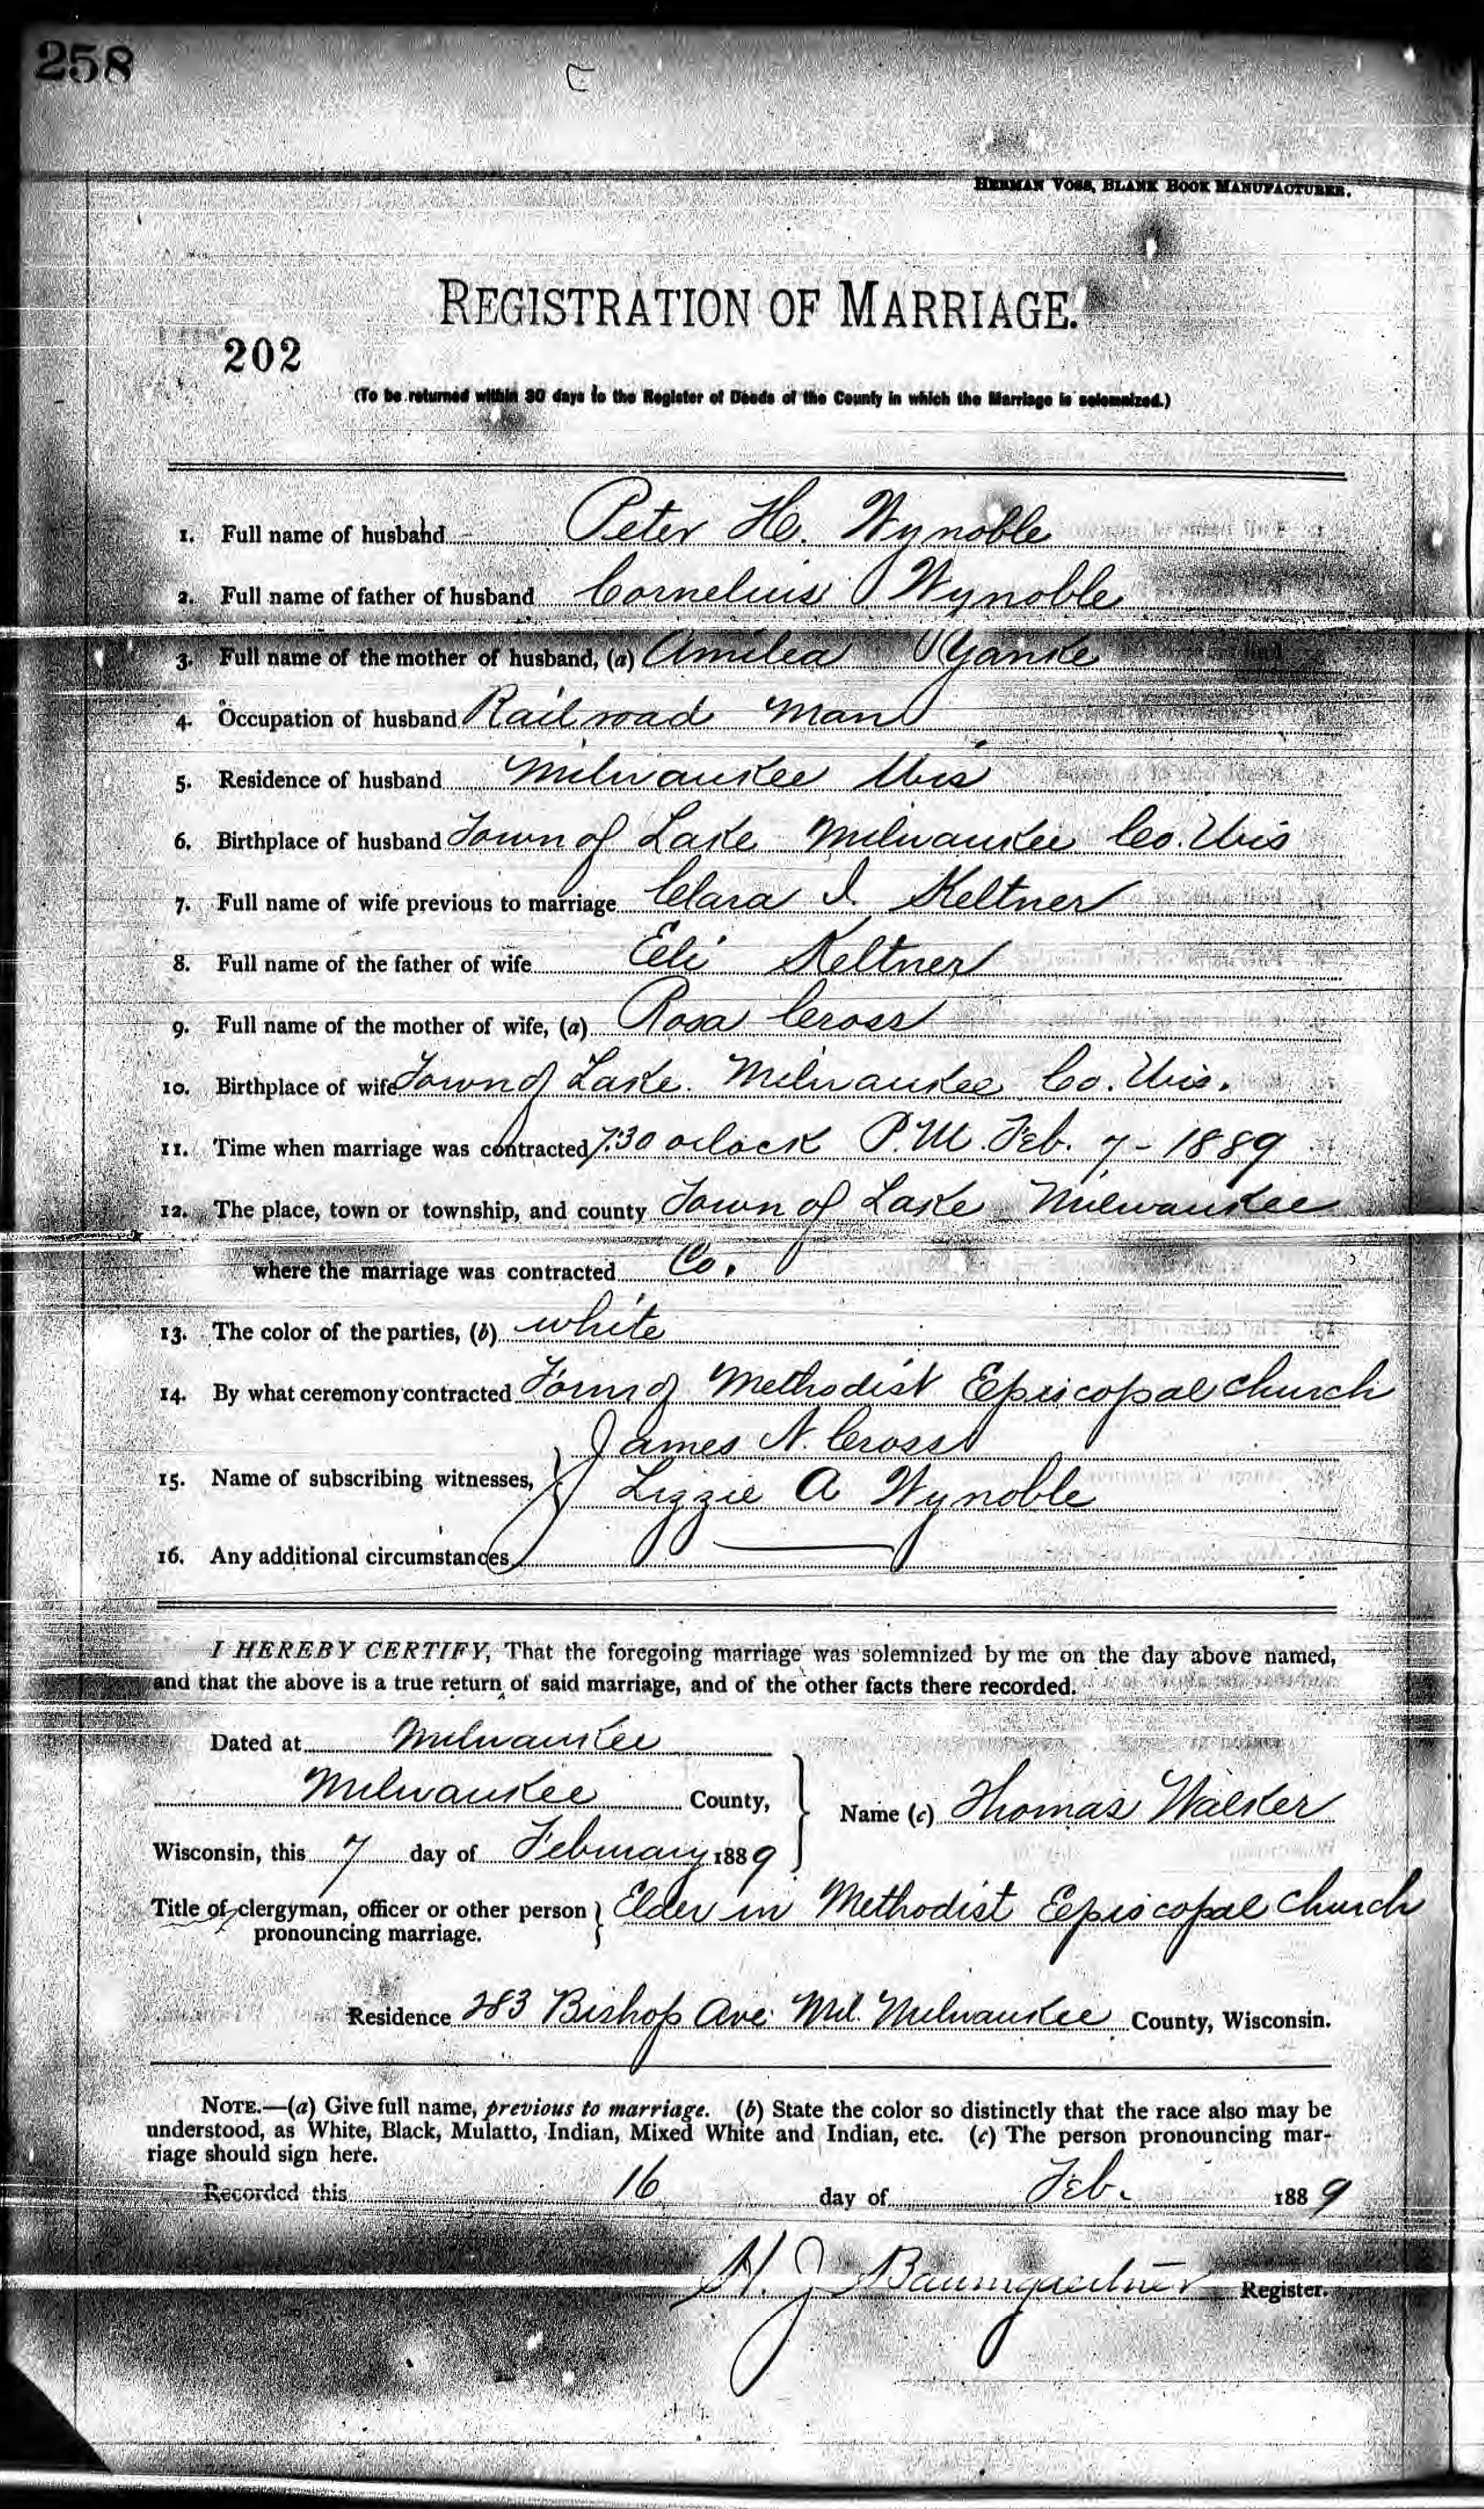 258
HERMAN VOSS, BLANK BOOK MANUFACTURER.
REGISTRATION OF MARRIAGE.
202
(To be returned within 30 days to the Register of Deeds of the County in which the Marriage is solemnized.)
1. Full name of husband Peter H. Wynoble
2. Full name of father of husband Cornelius Wynoble
3. Full name of the mother of husband, (a) Amilea Yanke
4. Occupation of husband Railroad Man
5. Residence of husband Milwaukee Wis
6. Birthplace of husband Town of Lake Milwaukee Co. Wis
7. Full name of wife previous to marriage Clara I. Keltner
8. Full name of the father of wife Eli Keltner
9. Full name of the mother of wife, (a) Rosa Cross
10. Birthplace of wife Town of Lake. Milwaukee Co. Wis.
11. Time when marriage was contracted 7:30 oclock P.M. Feb. 7 - 1889
12. The place, town or township, and county Town of Lake Milwaukee
where the marriage was contracted Co.
13. The color of the parties, (b) white
14. By what ceremony contracted Form of Methodist Episcopal church
James N. Cross
15. Name of subscribing witnesses, Lizzie A Wynoble
16. Any additional circumstances
I HEREBY CERTIFY, That the foregoing marriage was solemnized by me on the day above named,
and that the above is a true return of said marriage, and of the other facts there recorded.
Dated at Milwaukee
Milwaukee County,
Name (c) Thomas Walker
Wisconsin, this 7 day of February 1889
Title of clergyman, officer or other person Elder in Methodist Episcopal Church
pronouncing marriage.
Residence 283 Bishop Ave. Mil. Milwaukee County, Wisconsin.
NOTE.—(a) Give full name, previous to marriage. (b) State the color so distinctly that the race also may be
understood, as White, Black, Mulatto, Indian, Mixed White and Indian, etc. (c) The person pronouncing mar-
riage should sign here.
Recorded this 16 day of Feb. 1889
H. J. Baumgaertner Register.